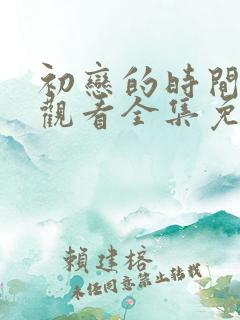 初戀的時間
觀看全集免
賴建榕
未任同意禁止转载